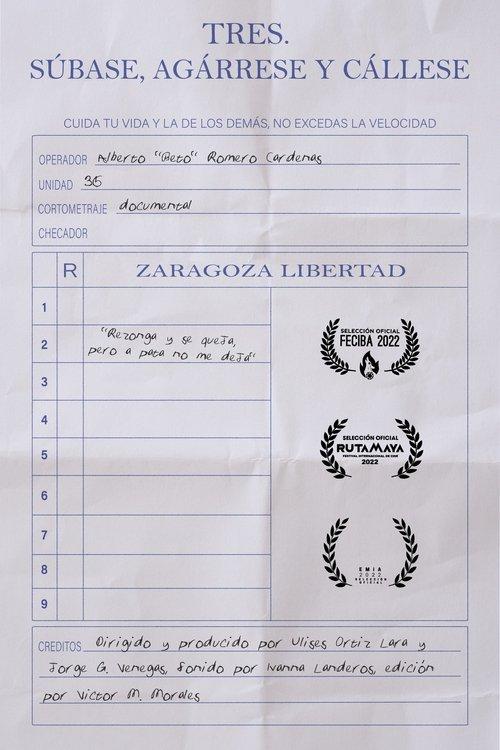 TRES.
SÚBASE, AGÁRRESE Y CÁLLESE
CUIDA TU VIDA Y LA DE LOS DEMÁS, NO EXCEDAS LA VELOCIDAD
OPERADOR Alberto "Beto" Romero Cardenas
UNIDAD 315
CORTOMETRAJE documental
CHECADOR
R ZARAGOZA LIBERTAD
1
2 "Rezonga y se queja,
pero a pata no me deja"
3
4
5
6
7
8
9
SELECCIÓN OFICIAL
FECIBA 2022
SELECCIÓN OFICIAL
RUTA MAYA
FESTIVAL INTERNACIONAL DE CINE
2022
EMIA
2022
SELECCIÓN
OFICIAL
CREDITOS Dirigido y producido por Ulises Ortiz Lara y
Jorge G. Venegas, sonido por Ivanna Landeros, edición
por Victor M. Morales